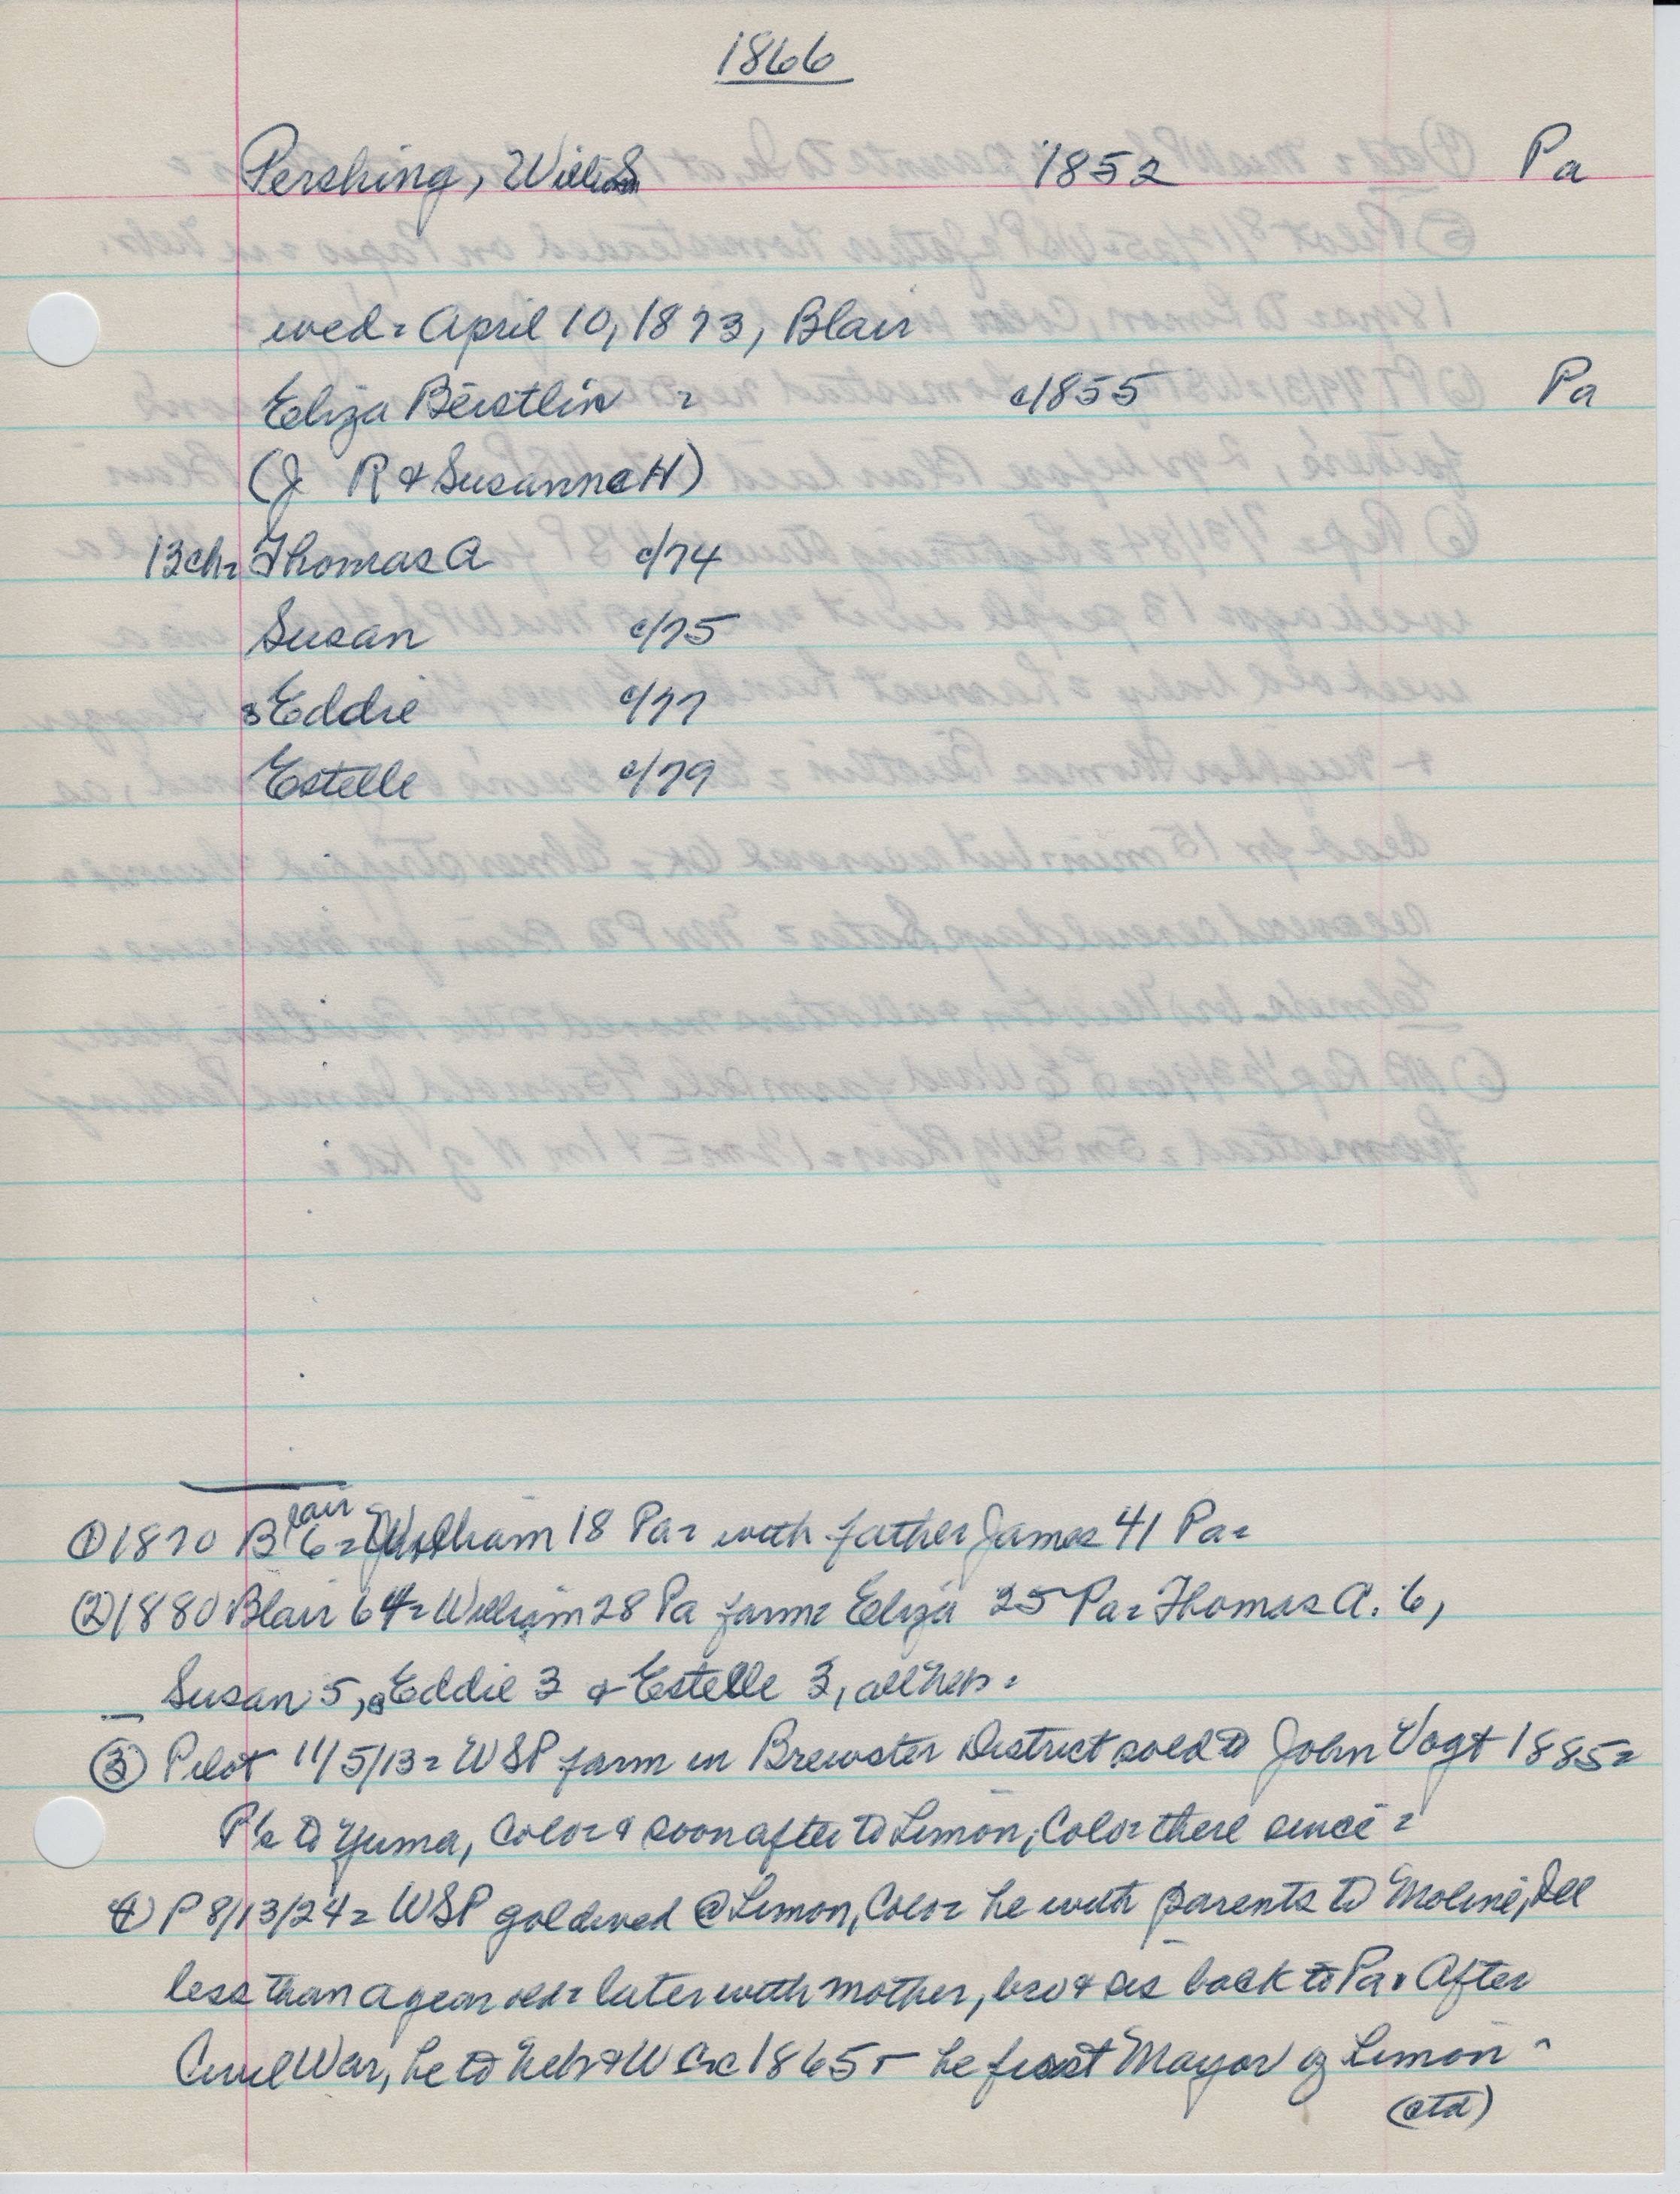 1866
Pershing, William S 1852 Pa
wed = April 10, 1873, Blair
Eliza Beistlin = c/1855 Pa
(J R & Susanna H)
13ch= Thomas A c/74
Susan c/75
Eddie c/77
Estelle c/79
① 1870 Blair 6 = William 18 Pa = with father James 41 Pa =
② 1880 Blair 64 = William 28 Pa farm = Eliza 25 Pa = Thomas A. 6,
Susan 5, Eddie 3 & Estelle 3, all Neb =
③ Pilot 11/5/13 = WSP farm in Brewster District sold to John Vogt 1885 =
P's to Yuma, Colo = & soon after to Limon, Colo = there since =
④ P 8/13/24 = WSP gol dived @ Limon, Colo = he with parents to Moline, Ill
less than a year old = later with mother, bro & sis back to Pa. After
Civil War, he to Neb & W Co 1865 - he first Mayor of Limon =
(ctd)